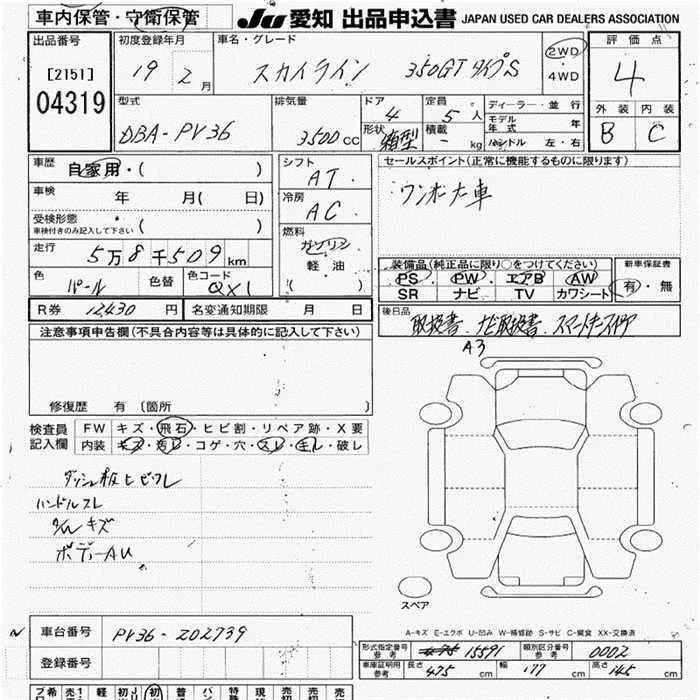 車内保管・守衛保管
JU 愛知 出品申込書 JAPAN USED CAR DEALERS ASSOCIATION
出品番号
[2151]
04319
初度登録年月
19 2月
車名・グレード
スカイライン 350GT タイプS
2WD
4WD
評価点
4
外装 内装
B C
型式
DBA-PV36
排気量
3500cc
ドア
4
形状
箱型
定員
5人
積載
- kg
ディーラー・並行
モデル年式 年
ハンドル 左・右
車歴
自家用・( )
車検
年 月( 日)
受検形態
車検付きのみ記入して下さい ( )
走行
5万8千509km
色
パール
色替
色コード
QX1
シフト
AT
冷房
AC
燃料
ガソリン
軽油
( )
セールスポイント(正常に機能するものに限ります)
ワンオーナー車
装備品(純正品に限り○をつけてください)
PS PW エアB AW
SR ナビ TV カワシート
新車保証書
有・無
R券 12430円
名変通知期限 月 日
後日品
取扱書 ナビ取扱書 スマートキースペア
注意事項申告欄(不具合内容等は具体的に記入して下さい)
修復歴 有 〔箇所
検査員記入欄
FW キズ・飛石・ヒビ割・リペア跡・X要
内装 キズ・汚レ・コゲ・穴・スレ・モレ・破レ
ダッシュ板ヒビワレ
ハンドルスレ
タイルキズ
ボディーAU
A3
スペア
A-キズ E-エクボ U-凹み W-補修跡 S-サビ C-腐食 XX-交換済
車台番号
PV36-202739
登録番号
型式指定番号
参考
15591
類別区分番号
参考
0002
車庫証明用
参考
長さ 475cm
幅 177cm
高さ 145cm